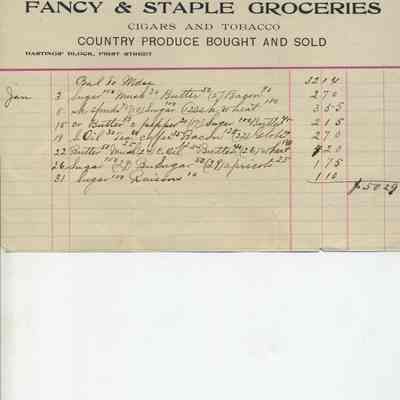 FANCY & STAPLE GROCERIES
CIGARS AND TOBACCO
COUNTRY PRODUCE BOUGHT AND SOLD
HASTINGS' BLOCK, FIRST STREET
Bal To Mdse 32 14
Jan 3 Sugar 100 Mush Butter 50 Bacon 2 70
6 Sugar 100 Wheat 100 3 55
15 Butter pepper 20 Sugar 100 Butter 2 15
19 C Oil Bacon 2 70
22 Butter 50 Mush 25 C. Oil Butter (26) Wheat 20
26 Sugar 100 Sugar 50 apricot 25 1 75
31 Sugar 100 Raisons 10 1 10
$50 29